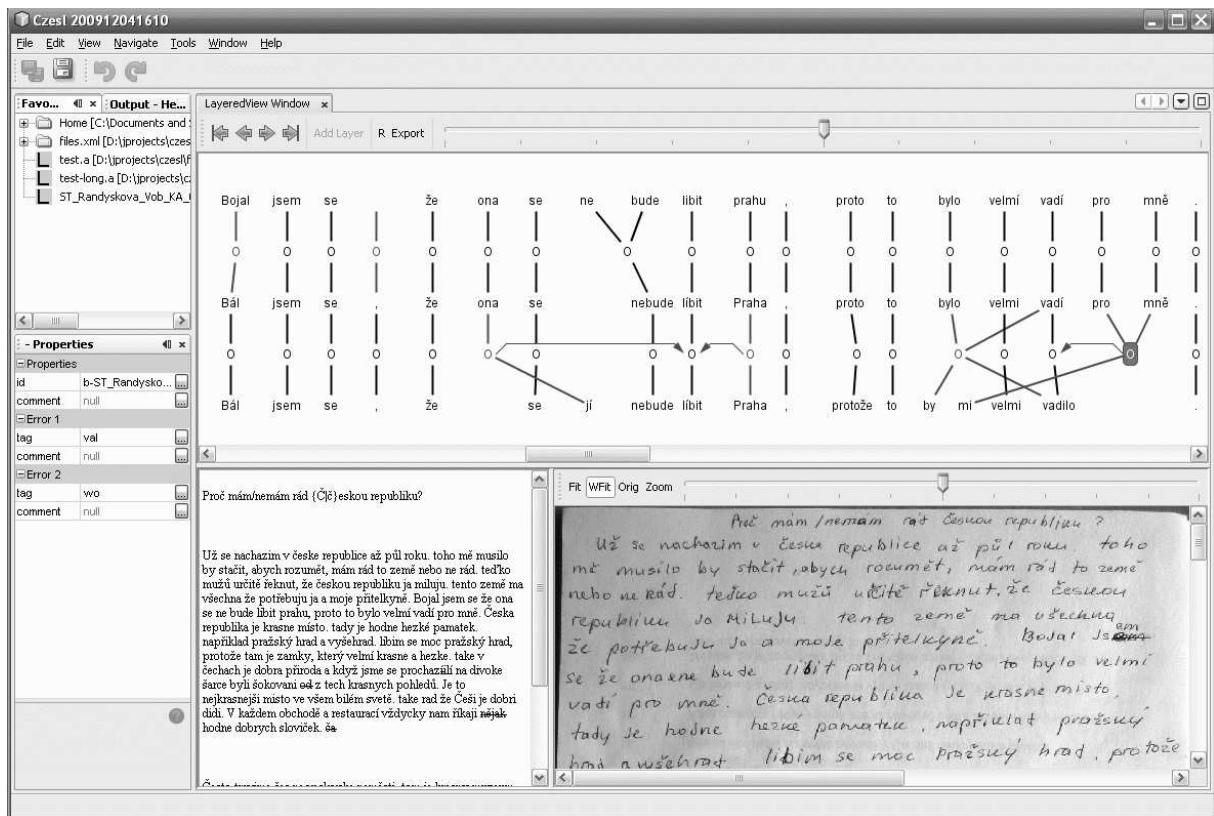 Czesl 200912041610
File Edit View Navigate Tools Window Help
Favo... Output - He...
Home [C:\Documents and
files.xml [D:\jprojects\czes
test.a [D:\jprojects\czesl\f
test-long.a [D:\jprojects\cz
ST_Randyskova_Vob_KA_
- Properties
Properties
id b-ST_Randysko... ...
comment null ...
Error 1
tag val ...
comment null ...
Error 2
tag wo ...
comment null ...
LayeredView Window
Add Layer R Export
Bojal jsem se že ona se ne bude libit prahu , proto to bylo velmí vadí pro mně .
Bál jsem se , že ona se nebude líbit Praha , proto to bylo velmi vadí pro mně .
Bál jsem se , že se jí nebude líbit Praha , protože to by mi velmi vadilo .
Proč mám/nemám rád {Č|č}eskou republiku?
Už se nachazim v česke republice až půl roku. toho mě musilo
by stačit, abych rozumět, mám rád to země nebo ne rád. teďko
mužů určitě řeknut, že českou republiku ja miluju. tento země ma
všechna že potřebuju ja a moje přitelkyně. Bojal jsem se že ona
se ne bude libit prahu, proto to bylo velmí vadí pro mně. Česka
republika je krasne místo. tady je hodne hezké pamatek.
například pražský hrad a vyšehrad. libim se moc pražský hrad,
protože tam je zamky, který velmí krasne a hezke. take v
čechach je dobra přiroda a když jsme se prochazíli na divoke
šarce byli šokovani od z tech krasnych pohledů. Je to
nejkrasnejši misto ve všem bilém svetě. take rad že Češi je dobri
didi. V každem obchodě a restaurací vždycky nam říkaji nějak
hodne dobrych sloviček. ča
Fit WFit Orig Zoom
Proč mám /nemám rád českou republiku ?
Už se nachazim v česke republice až půl roku. toho
mě musilo by stačit, abych rozumět, mám rád to země
nebo ne rád. teďko mužů určitě řeknut, že českou
republiku Ja MiLuJu. tento země ma všechna
že potřebuJu Ja a moJe přitelkyně. BoJal Jsem
se že ona ne bude libit prahu, proto to bylo velmí
vadí pro mně. Česka republika Je krasne misto,
tady Je hodne hezké pamatek, napřiklat pražský
hrad a vyšehrad. libim se moc Pražský hrad, protože